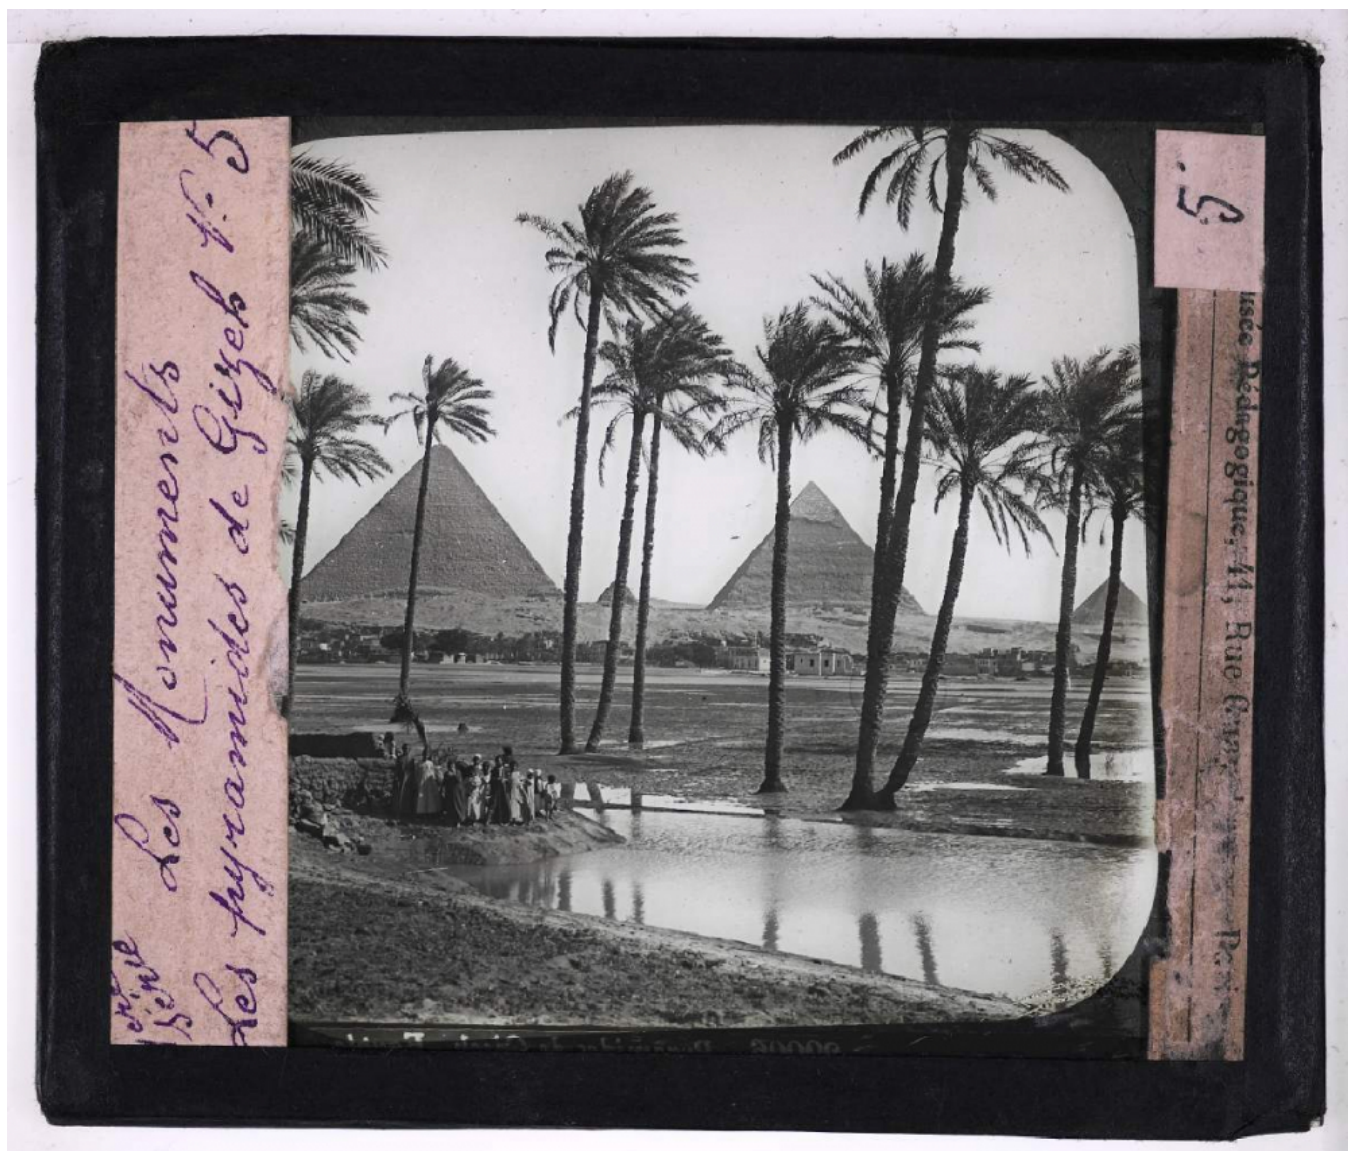 1ère Série Les Monuments
Les pyramides de Gizeh N: 5
5.
usée Pédagogique, 41, Rue